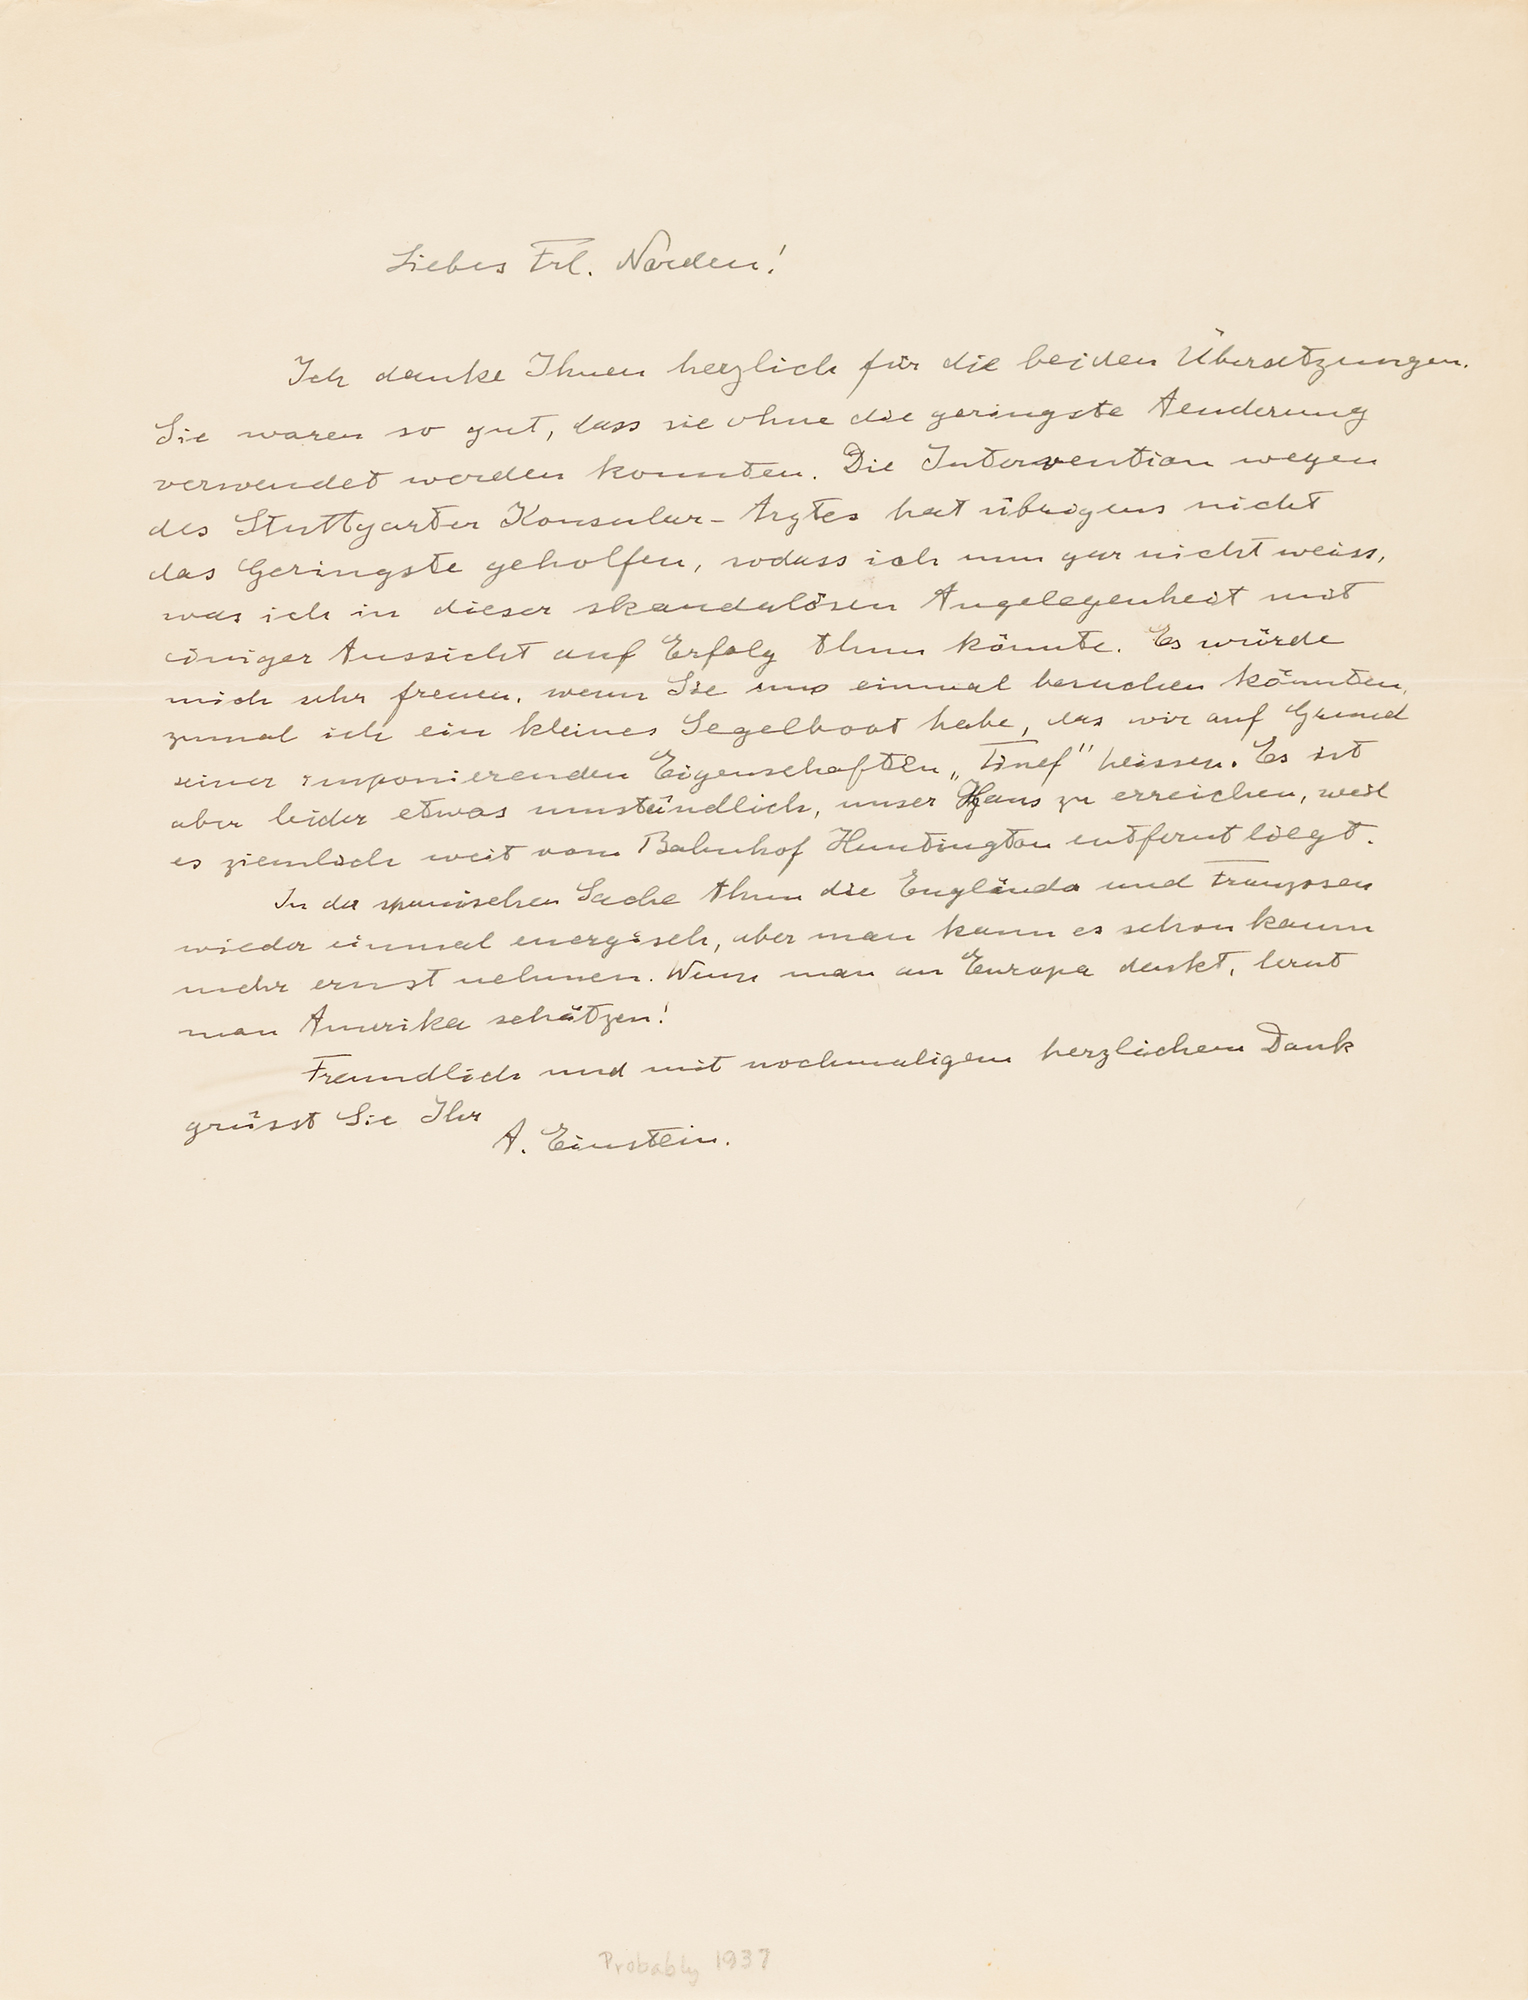 Liebes Frl. Norden!
Ich danke Ihnen herzlich für die beiden Übersetzungen.
Sie waren so gut, dass sie ohne die geringste Aenderung
verwendet werden konnten. Die Intervention wegen
des Stuttgarter Konsular-Arztes hat übrigens nicht
das Geringste geholfen, sodass ich nun gar nicht weiss,
was ich in dieser skandalösen Angelegenheit mit
einiger Aussicht auf Erfolg thun könnte. Es würde
mich sehr freuen, wenn Sie uns einmal besuchen könnten,
zumal ich ein kleines Segelboot habe, das wir auf Grund
seiner imponierenden Eigenschaften „Tinef" heissen. Es ist
aber leider etwas umständlich, unser Haus zu erreichen, weil
es ziemlich weit vom Bahnhof Huntington entfernt liegt.
In der spanischen Sache thun die Engländer und Franzosen
wieder einmal energisch, aber man kann es schon kaum
mehr ernst nehmen. Wenn man an Europa denkt, lernt
man Amerika schätzen!
Freundlich und mit nochmaligem herzlichem Dank
grüsst Sie Ihr
A. Einstein.
Probably 1937